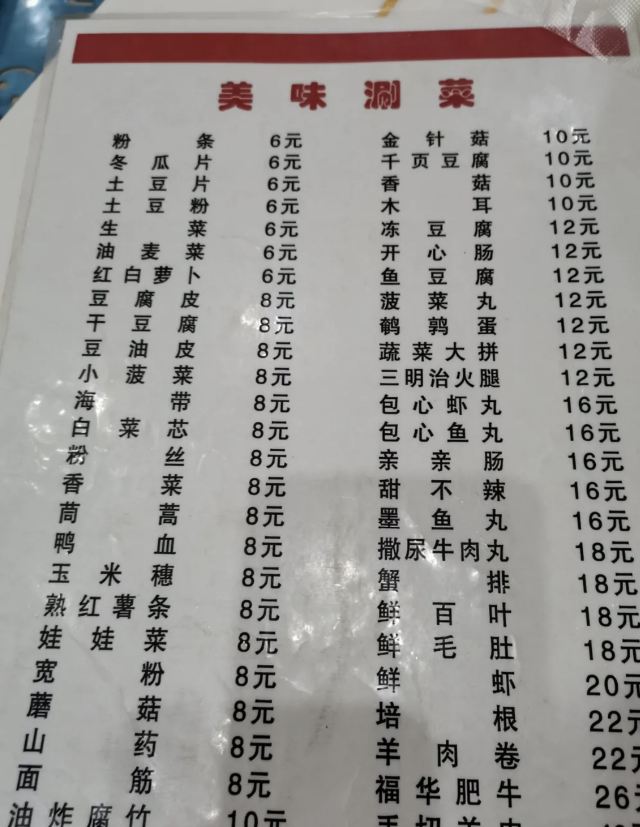 美味涮菜
粉条 6元
冬瓜片 6元
土豆片 6元
土豆粉 6元
生菜 6元
油麦菜 6元
红白萝卜 6元
豆腐皮 8元
干豆腐 8元
豆油皮 8元
小菠菜 8元
海带 8元
白菜芯 8元
粉丝 8元
香菜 8元
茼蒿 8元
鸭血 8元
玉米穗 8元
熟红薯条 8元
娃娃菜 8元
宽粉 8元
蘑菇 8元
山药 8元
面筋 8元
油炸腐竹 10元
金针菇 10元
千页豆腐 10元
香菇 10元
木耳 10元
冻豆腐 12元
开心肠 12元
鱼豆腐 12元
菠菜丸 12元
鹌鹑蛋 12元
蔬菜大拼 12元
三明治火腿 12元
包心虾丸 16元
包心鱼丸 16元
亲亲肠 16元
甜不辣 16元
墨鱼丸 16元
撒尿牛肉丸 18元
蟹排 18元
鲜百叶 18元
鲜毛肚 18元
鲜虾 20元
培根 22元
羊肉卷 22元
福华肥牛 26元
手切羊肉